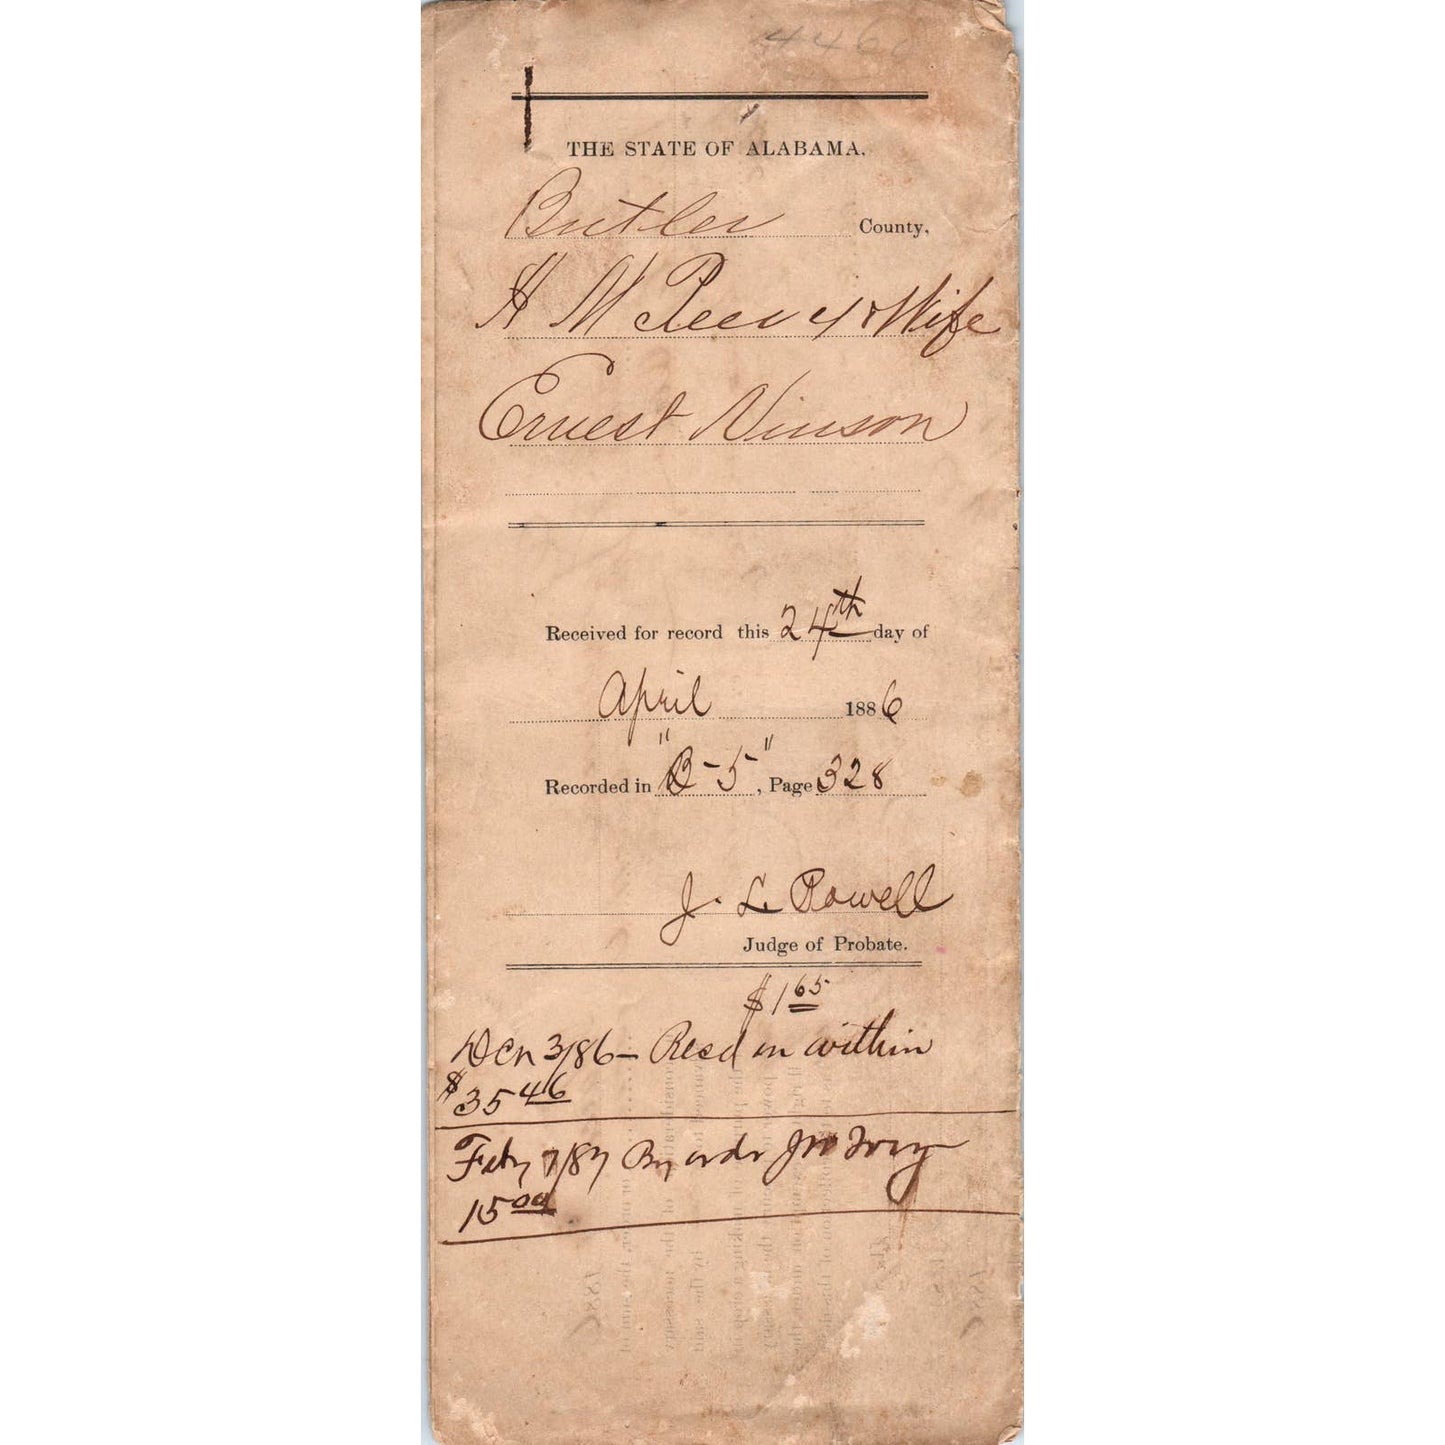 446
THE STATE OF ALABAMA.
Butler County,
H McPeevy & Wife
Ernest Vinson
Received for record this 24th day of
April 1886
Recorded in "B-5", Page 328
J. L. Powell
Judge of Probate.
$1 65
Decr 3/86 — Recd on within
$35 46
Feby 7/87 By ordr Jno
15 00